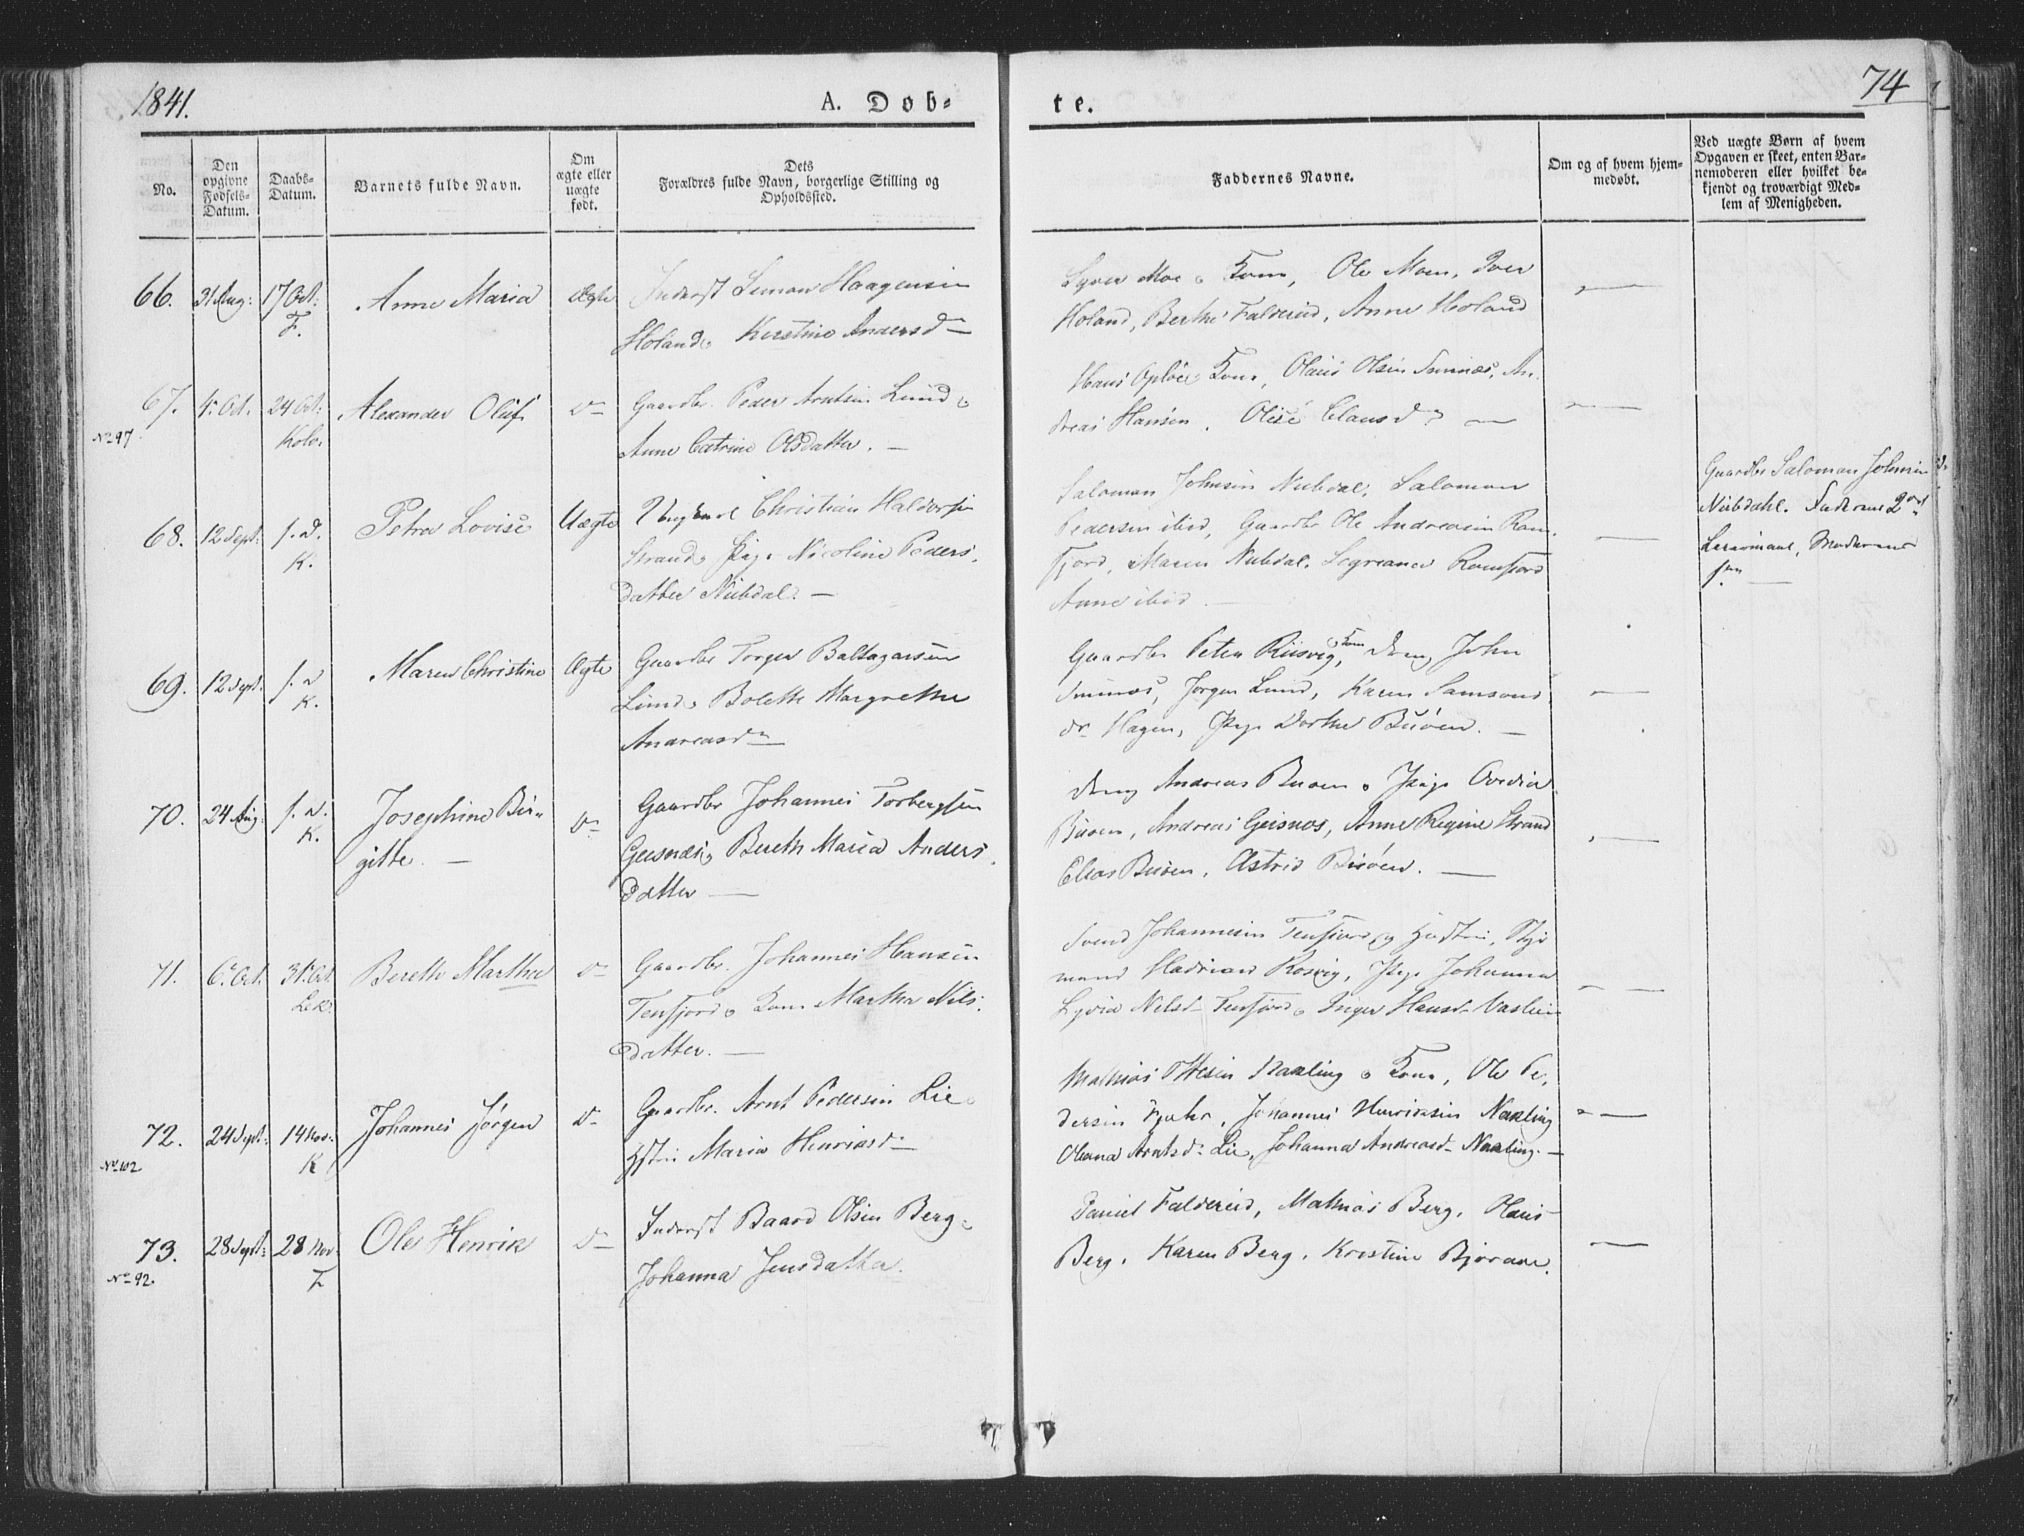 1841.
A. Døb-
te.
74
No.
Den opgivne Fødsels-Datum.
Daabs-Datum.
Barnets fulde Navn.
Om ægte eller uægte født.
Dets Forældres fulde Navn, borgerlige Stilling og Opholdssted.
Faddernes Navne.
Om og af hvem hjem-medøbt.
Ved uægte Børn af hvem
Opgaven er skeet, enten Bar-
nemoderen eller hvilket be-
kjendt og troværdigt Med-
lem af Menigheden.
66. 31 Aug: 17 Oct: F. Anne Maria Ægte
Inderst Simon Haagensen
Holand, Kirstine Andersd
Moe Kone, Ole Moen, Iver
Holand, Berthe Faldereid, Anne Holand
67. No 97 4. Oct. 24 Oct: Kolv: Alexander Oluf do
Gaardbr. Peder Arntsen Lund
Anne Catrine Olsdatter. —
Hans Opløe Kone, Olaus Olsen An-
dreas Hansen. Clausd
68. 12 Sept: s. D. K. Petra Lovise Uægte
Ungkarl Christian Haldorsen
Strand, Pige Nicoline Peders-
datter Nubdal. —
Salomon Johnsen Nubdal, Salomon
Pedersen ibid, Gaardbr Ole Andreasen Ram-
fjord, Maren Nubdal, Ramfjord
Anne ibid
Gaardbr Salomon Johnsen
Nubdahl. Faderens 2det
Leiermaal, Moderens
69. 12 Sept: s. D. K. Maren Christine Ægte
Gaardbr Torger Baltazarsen
Lund, Bolette Margrethe
Andreasd
Gaardbr Peter Riisvig, Kone, Dreng John
Jørgen Lund, Karen Samsons
dr Hagen, Pige Dorthe Buøen. —
70. 24 Aug: s. D. K. Josephine Bir-
gitte. — do
Gaardbr Johannes Torbergsen
Geisnæs, Bereth Maria Anders-
datter —
Dreng Andreas Buøen, Pige
Buøen, Andreas Geisnæs, Anne Regine Strand
Elias Buøen, Astrid Buøen. —
71. 6. Oct. 31. Oct. Lek: Bereth Martha do
Gaardbr. Johannes Hansen
Tenfjord, Kone Martha Nils-
datter. —
Svend Johannesen Tenfjord og Hustru,
Pige Johanna
Nilsd Tenfjord, Inger Hansd
72. No 102 24 Sept: 14 Nov: K Johannes Jørgen do
Gaardbr. Arnt Pedersen Lie
Hstru Maria Henriksd
Mathias Naaling Kone, Ole Pe-
dersen Johannes Henriksen Naaling
Arntsd Lie, Johanna Andreasd Naaling. —
73. No 92. 28 Sept: 28 Nov: F Ole Henrik do
Inderst Baard Olsen Berg
Johanna Jensdatter.
Daniel Faldereid, Mathias Berg, Olaus
Berg, Karen Berg, Kristine